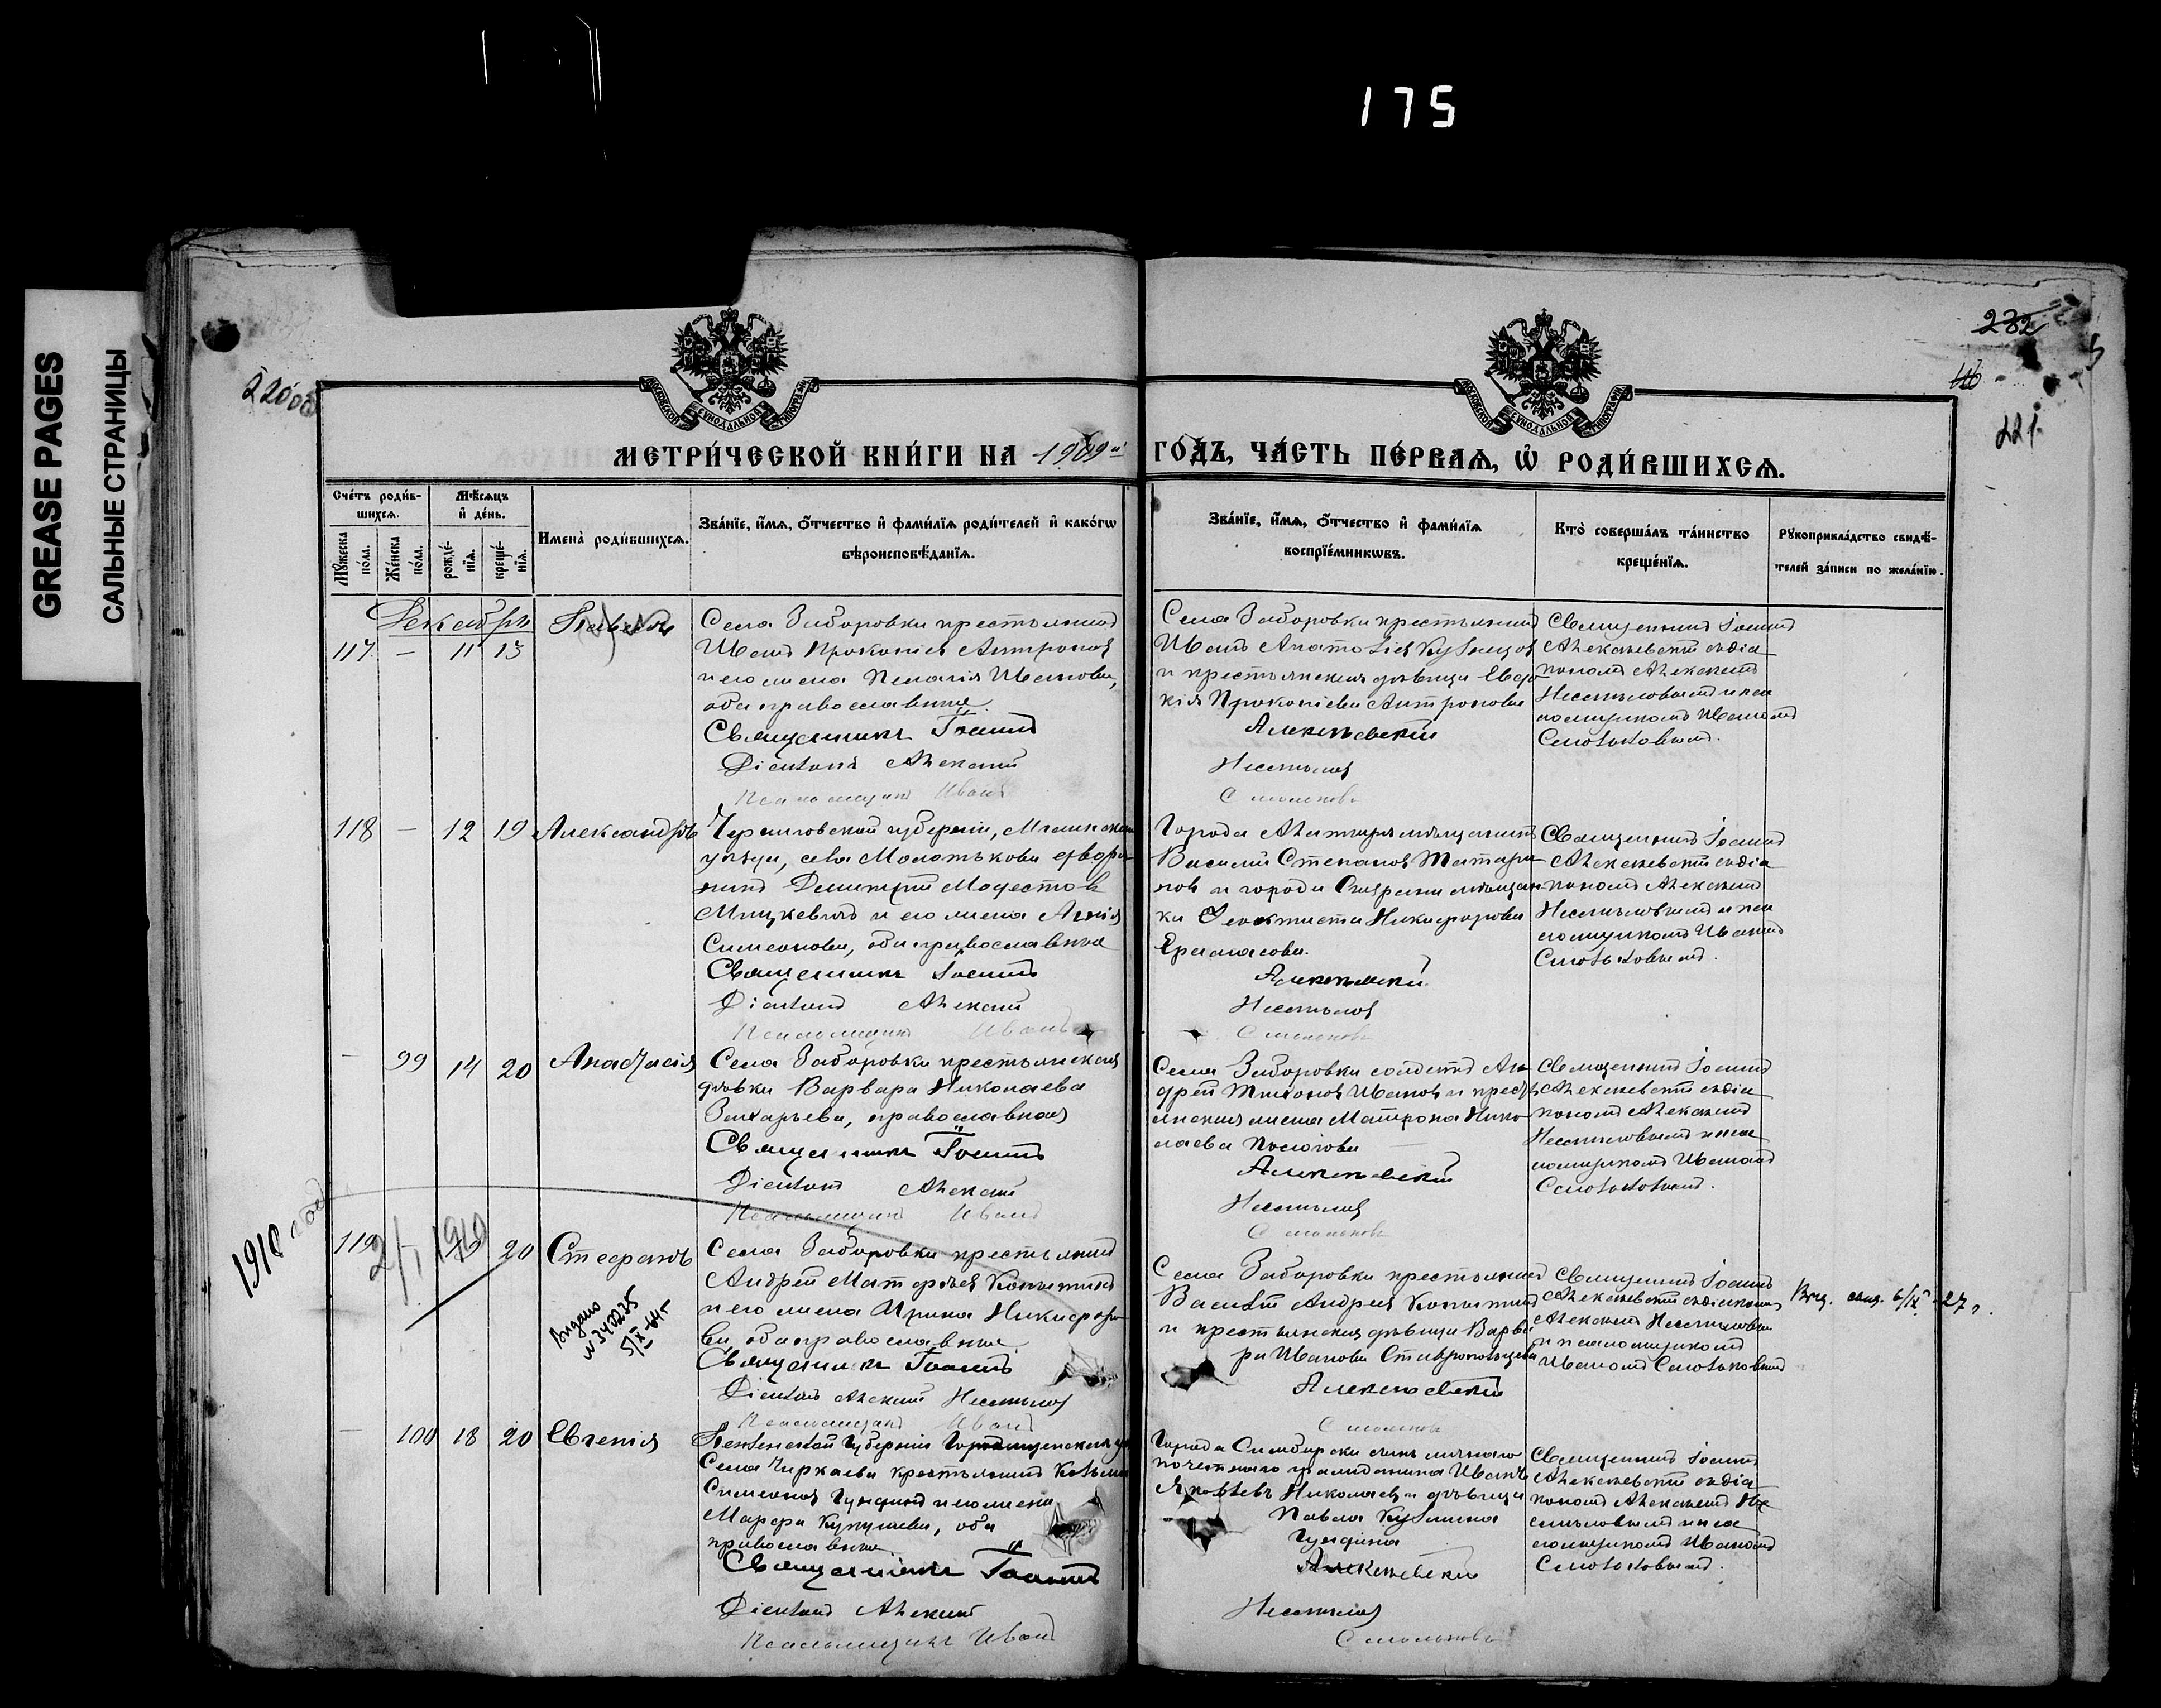 175
GREASE PAGES
САЛЬНЫЕ СТРАНИЦЫ
232
220 об
221.
МЕТРИ́ЧЕСКОЙ КНИ́ГИ НА 1909й ГО́ДЪ, ЧА́СТЬ ПЕ́РВАЯ, Ѡ҆ РОДИ́ВШИХСЯ.
Сче́тъ роди́в-
шихся.
Мꙋ́жеска по́ла.
Же́нска по́ла.
Мѣ́сяцъ и҆ де́нь.
рожде́-нїя.
креще́-нїя.
Имена̀ роди́вшихся.
Зва́нїе, и҆́мя, ѻ҆́тчество и҆ фами́лїя роди́телей и҆ како́гѡ
вѣроисповѣ́данїя.
Зва́нїе, и҆́мя, ѻ҆́тчество и҆ фами́лїя
воспрїе́мникѡвъ.
Кто̀ соверша́лъ та́инство
креще́нїя.
Рꙋкоприкла́дство свидѣ́-
телей за́писи по жела́нїю.
Декабрь
117 – 11 13
Павелъ
Села Заборовки крестьянинъ
Иванъ Прокопіевъ Антроповъ
и его жена Пелагія Иванова,
оба православные.
Священникъ Іоаннъ
Діаконъ Алексій
Псаломщикъ Иванъ
Села Заборовки крестьянинъ
и крестьянская дѣвица Евдо-
кія Прокопіева Антропова
Алексѣевскій
Несмѣловъ
Смольковъ
Священникъ Іоаннъ
Алексѣевскій съ діа-
кономъ Алексіемъ
Несмѣловымъ и пса-
ломщикомъ Иваномъ
Смольковымъ.
118 – 12 19
Александръ
Черниговской губерніи, Мглинскаго
уѣзда, села Молотькова дворя-
нинъ Димитрій Модестовъ
Мицкевичъ и его жена Агнія
Симеонова, оба православные
Священникъ Іоаннъ
Діаконъ Алексій
Псаломщикъ Иванъ
Василій Степановъ Татари-
новъ и города Сызрани мѣщан-
ка Ѳеоктиста Никифорова
Ермасова.
Алексѣевскій
Несмѣловъ
Смольковъ
Священникъ Іоаннъ
Алексѣевскій съ діа-
кономъ Алексіемъ
Несмѣловымъ и пса-
ломщикомъ Иваномъ
Смольковымъ.
– 99 14 20
Анастасія
Села Заборовки крестьянская
дѣвка Варвара Николаева
Захарьева, православная
Священникъ Іоаннъ
Діаконъ Алексій
Псаломщикъ Иванъ
Села Заборовки солдатъ Ан-
дрей Тихоновъ Ивановъ и кресть-
янская жена Матрона Нико-
лаева
Алексѣевскій
Несмѣловъ
Смольковъ
Священникъ Іоаннъ
Алексѣевскій съ діа-
кономъ Алексіемъ
Несмѣловымъ и пса-
ломщикомъ Иваномъ
Смольковымъ.
1910 года
119 2/I 1910 20
Стефанъ
Выдано
5/IX-64г
Села Заборовки крестьянинъ
Андрей Матѳеевъ Копытинъ
и его жена Ирина Никифоро-
ва, оба православные.
Священникъ Іоаннъ
Діаконъ Алексій Несмѣловъ
Псаломщикъ Иванъ
Села Заборовки крестьянинъ
Василій Андреевъ Копытинъ
и крестьянская дѣвица Варва-
ра Иванова Ставропольцева
Алексѣевскій
Смольковъ
Священникъ Іоаннъ
Алексѣевскій съ діакономъ
Алексіемъ Несмѣловымъ
и псаломщикомъ
Иваномъ Смольковымъ
6/IX-27г.
– 100 18 20
Евгенія
Пензенской губерніи Городищенскаго у.
Села Чиркаева крестьянинъ Козьма
Симеоновъ Гунинъ и его жена
оба
православные
Священникъ Іоаннъ
Діаконъ Алексій
Псаломщикъ Иванъ
Города Симбирска сынъ личнаго
почетнаго гражданина Иванъ
Яковлевъ Николаевъ и дѣвица
Павла Кузьмина
Алексѣевскій
Несмѣловъ
Смольковъ
Священникъ Іоаннъ
Алексѣевскій съ діа-
кономъ Алексіемъ Не-
смѣловымъ и пса-
ломщикомъ Иваномъ
Смольковымъ.